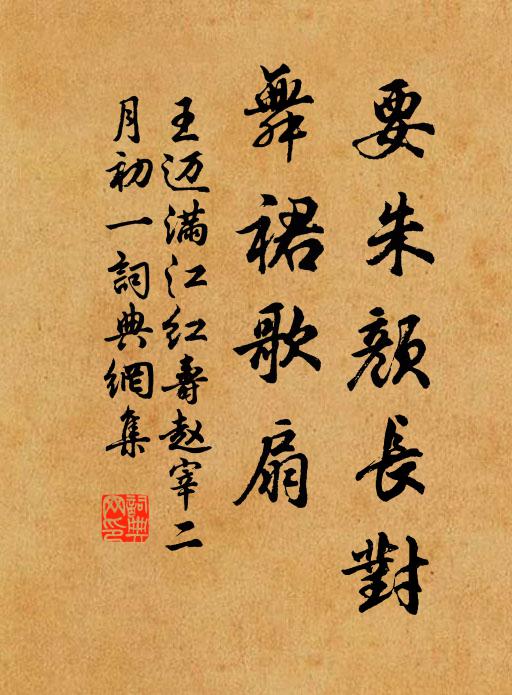 要朱顏長對
舞裙歌扇
王迈满江红壽赵宰二
月初一詞典網集
詞典
网印